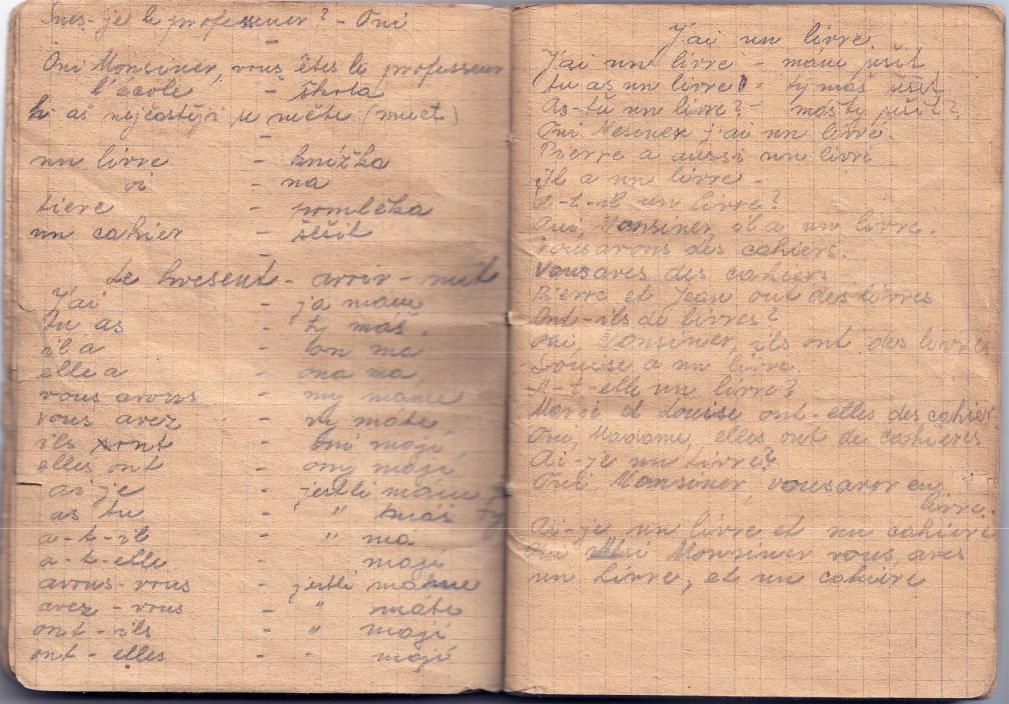 Sues-je le professeur? - Oui
Oui Monsiner, vous êtes le professeur
l'école - škola
un livre - knížka
oi - na
tiere
un cahier - sěšit
Le Present - avoir - mít
J'ai - ja mam
Tu as - ty máš.
il a - on ma
elle a - ona ma,
vous avons - my mame
vous avez - vy máte
ils ont - oni mají
elles ont - ony mají
ai je - jestli mám
as tu - " máš ty
a-t-il - " ma
a-t-elle mají
avons-vous - jestli máme
avez-vous - " máte
ont-ils - " mají
ont-elles - " mají
J'ai un livre
J'ai un livre - mam
tu as un livre - ty máš
As-tu un livre? - máš ty
Oui Mesiner j'ai un livre.
Pierre a aussi un livre
Il a un livre -
A-t-il un livre?
Oui, Monsiner, il a un livre.
Vous avons des cahiers.
Vous aves des cahiers
Pierre et Jean out des livres
Ont-ils de livres?
Oui, Monsiner, ils ont des livres
Louise a un livre.
A-t-elle un livre?
et Louise ont-elles des cahier
Oui, Madame, elles ont de cahieres
Ai-je un livre?
Oui, Monsiner, vous avor en
livre.
Ai-je un livre et un cahiere
Oui Monsiner vous aves
un Livre, et un cahiere